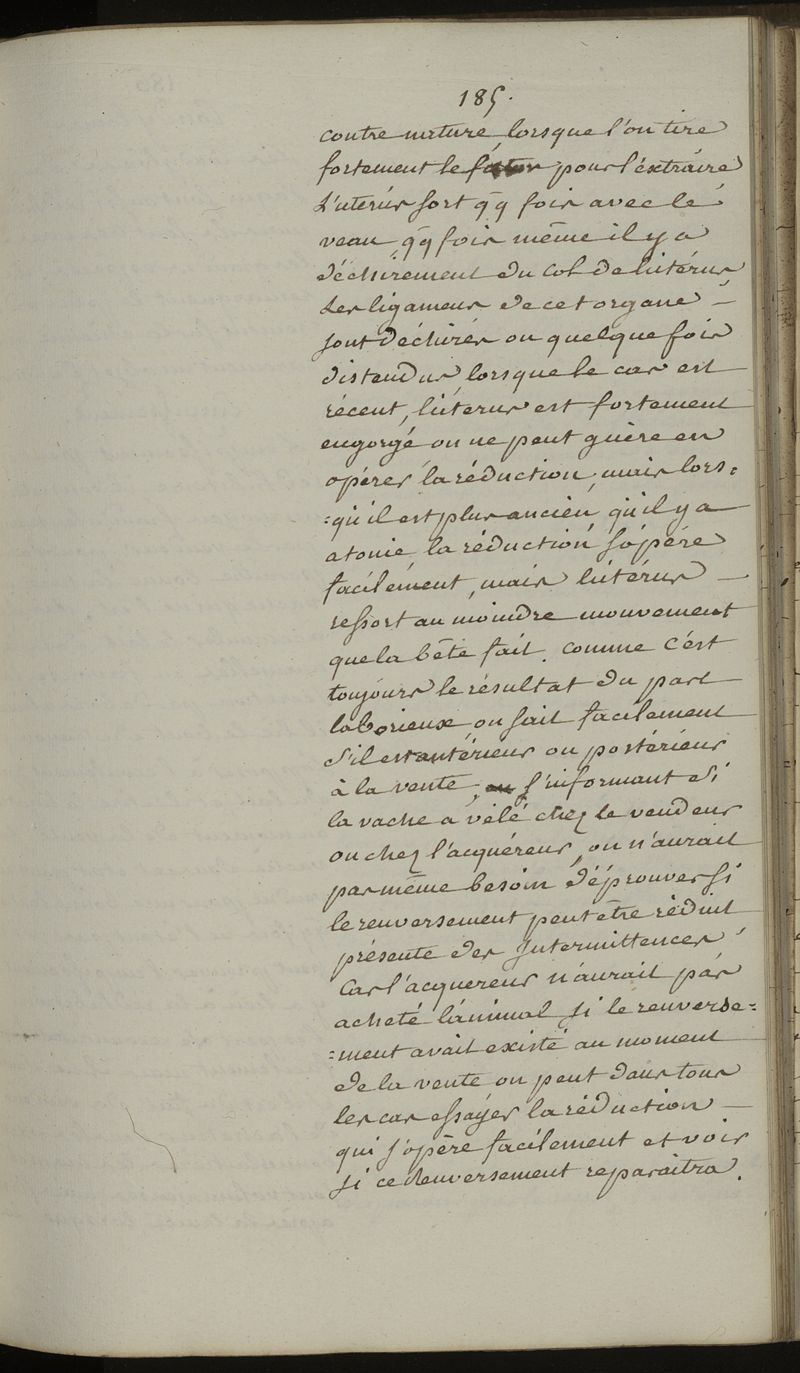 185.
contre nature lorsque l'on tire
fortement le fœtus pour l'éxtraire
L'uterús sort q̄q̄ fois avec le
veau, q̄q̄ fois même il y a
déchirement du col de lutérus
Les ligamens de cet organe —
sont déchirés ou quelque fois
distendus, lorsque le cas est
récent, lútérus est fortement
engorgé on ne peut guère en
opérer la réduction, mais lors-
=qu'il est plus ancien, qu'il y a
atonie, la réduction s'opére
facilement, mais lútérus —
ressort au moindre mouvement
que la bête fait. Comme c'est
toujours le résultat du part
laborieux on sait facilement
s'il est antérieur ou postérieur
à la vente, s'informant si
la vache a vélé chez le vendeur
ou chez l'acquéreur, on n'aurait
pas même besoin d'éprouver si
le renversement peut être réduit
présente des Intermittences
Car l'acquereur n'aurait pas
acheté lánimal si le renverse=
=ment avait existé au moment
de la vente on peut dans tous
les cas essayer la réduction —
qui s'opère facilement et voir
si ce Renversement reparaitra.